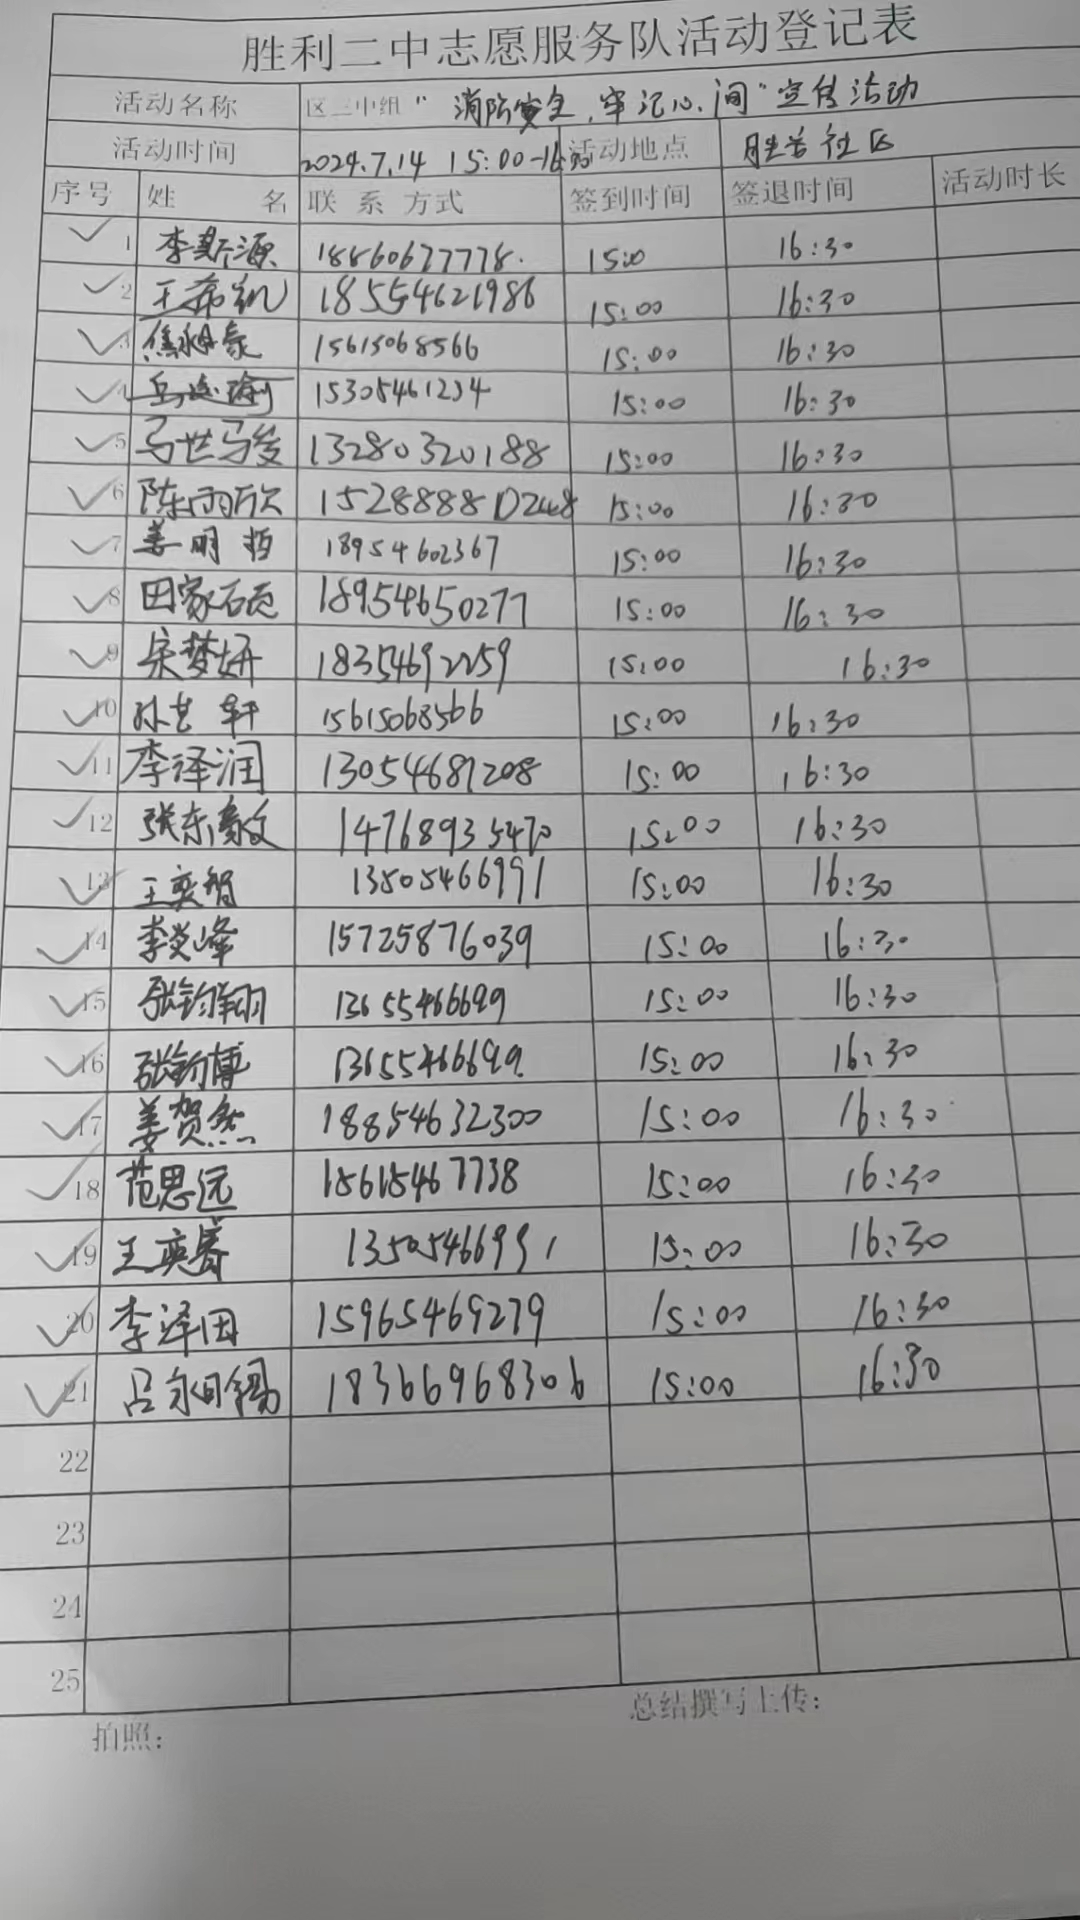 胜利二中志愿服务队活动登记表
活动名称 区二中组"消防安全,牢记心间"宣传活动
活动时间 2024.7.14 15:00-16:30 活动地点 胜兰社区
序号 姓 名 联 系 方式 签到时间 签退时间 活动时长
1 李斯源 18860677778. 15:00 16:30
2 王希凯 18554621986 15:00 16:30
3 15615068566 15:00 16:30
4 15305461234 15:00 16:30
5 马世骏 13280320188 15:00 16:30
6 陈雨欣 15:00 16:30
7 姜明哲 18954602367 15:00 16:30
8 田家硕 18954650277 15:00 16:30
9 宋梦妍 18354692259 15:00 16:30
10 孙艺轩 15615068566 15:00 16:30
11 李泽润 13054687208 15:00 16:30
12 张东 14768935470 15:00 16:30
13 王奕智 13505466991 15:00 16:30
14 李炎峰 15725876039 15:00 16:30
15 张钧翔 13655466699 15:00 16:30
16 张钧博 13655466699 15:00 16:30
17 姜贺然 18854632300 15:00 16:30
18 范思远 15615467738 15:00 16:30
19 王奕睿 13505466991 15:00 16:30
20 李泽田 15965469279 15:00 16:30
21 吕 18366968306 15:00 16:30
22
23
24
25
拍照: 总结撰写上传: